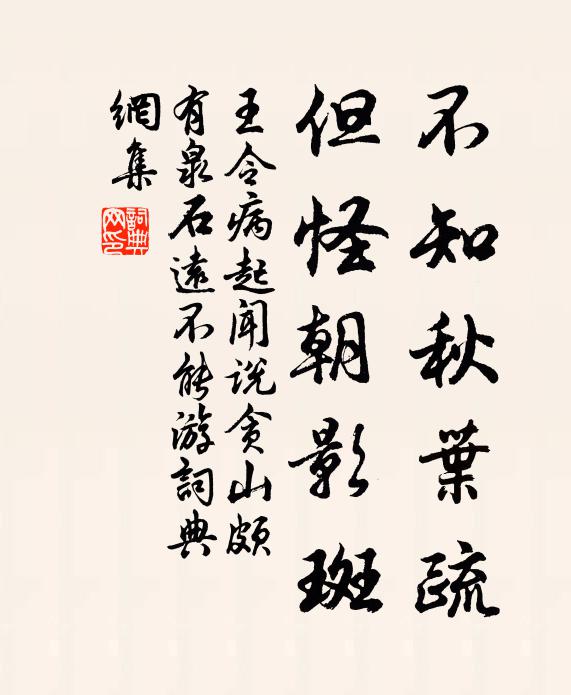 不知秋葉疏
但怪朝影斑
王令病起聞說貪山頗
有泉石遠不能游詞典
網集
詞典网印